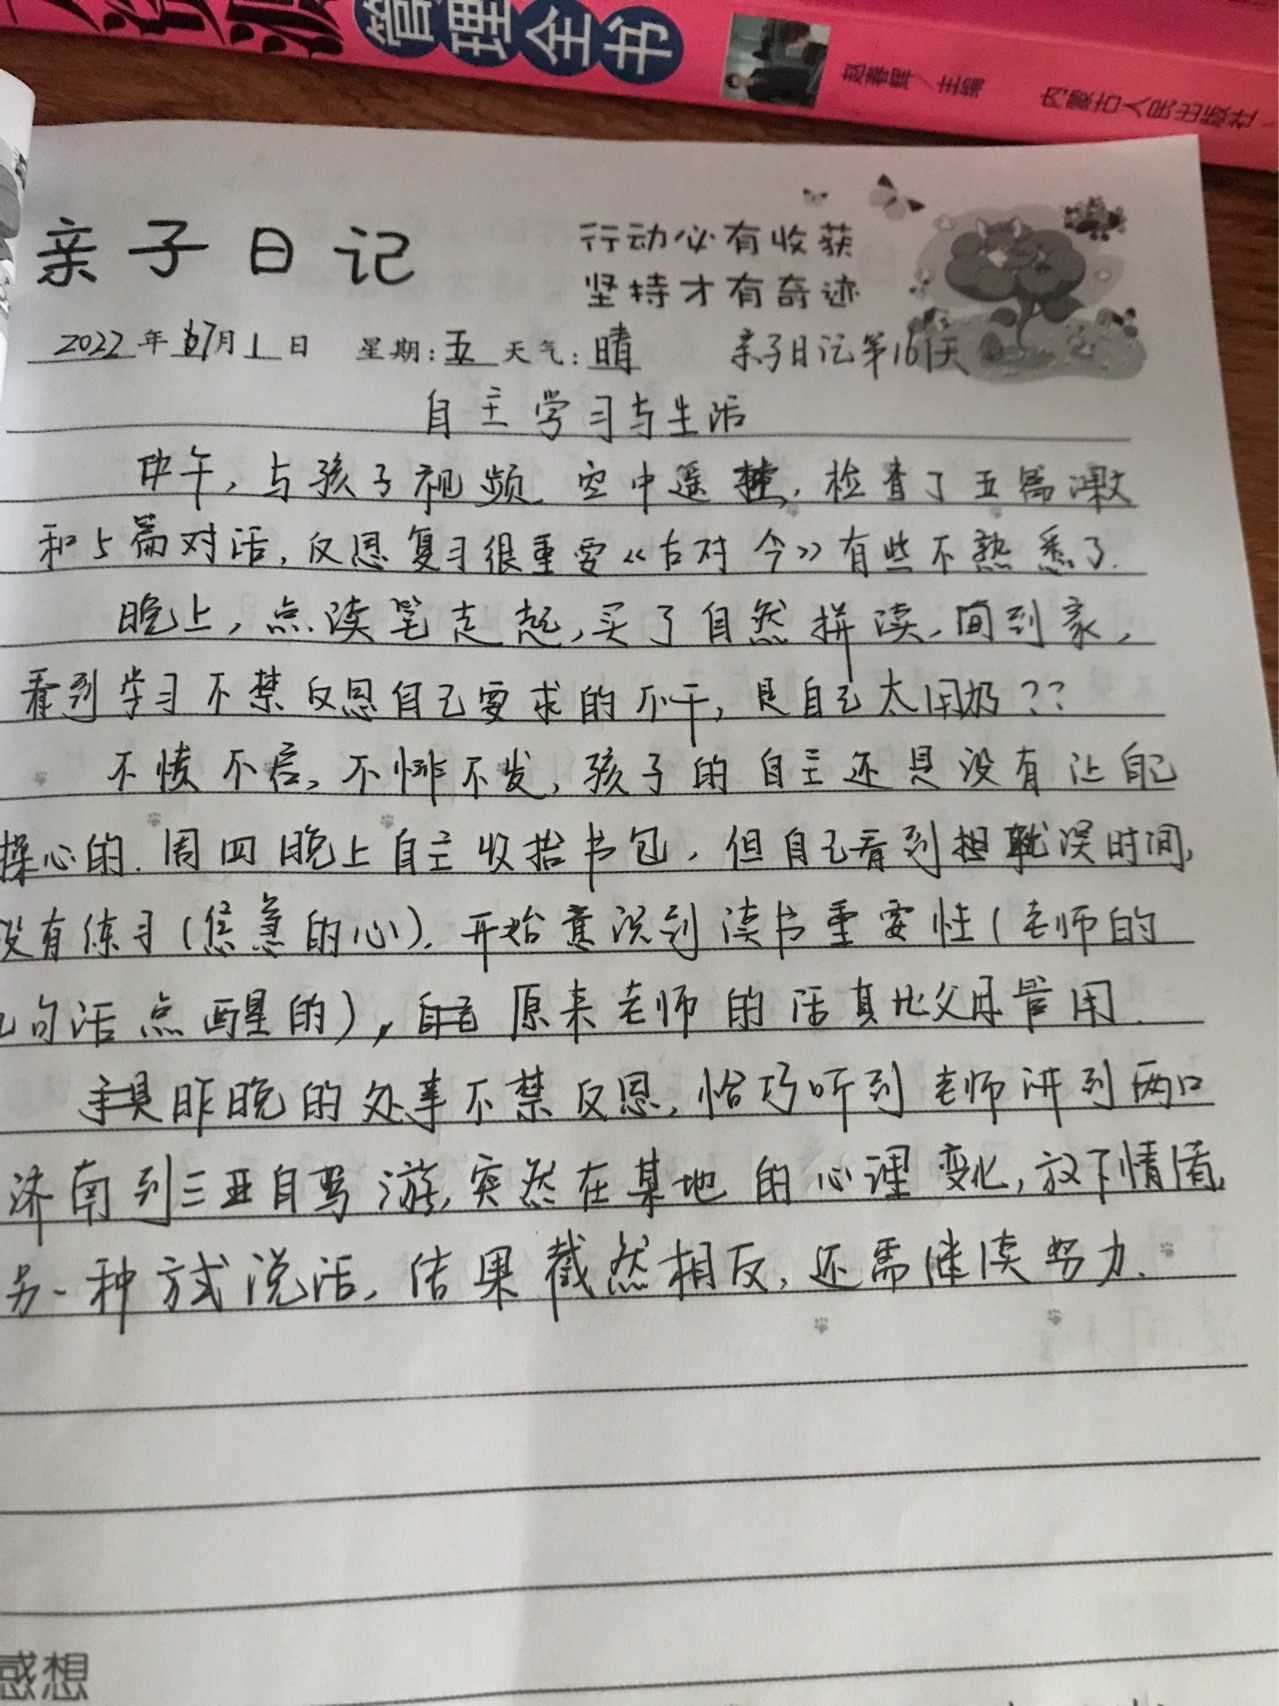 管理全书
赵春辉/主编 内蒙古人民出版社
亲子日记
行动必有收获
坚持才有奇迹
2022年7月1日 星期:五 天气:晴 亲子日记第161天
自主学习与生活
中午,与孩子视频.空中遥控,检查了五篇课文
和5篇对话,反思复习很重要《古对今》有些不熟悉了.
晚上,点读笔走起,买了自然拼读,回到家,
看到学习不禁反思自己要求的不干,是自己太用功??
不愤不启,不悱不发,孩子的自主还是没有让自己
操心的.周四晚上自主收拾书包,但自己看到担耽误时间,
没有练习(焦急的心).开始意识到读书重要性(老师的
几句话点醒的),原来老师的话真比父母管用.
昨晚的处事不禁反思,恰巧听到老师讲到两口
济南到三亚自驾游,突然在某地的心理变化,放下情绪,
另一种方式说话,结果截然相反,还需继续努力.
感想